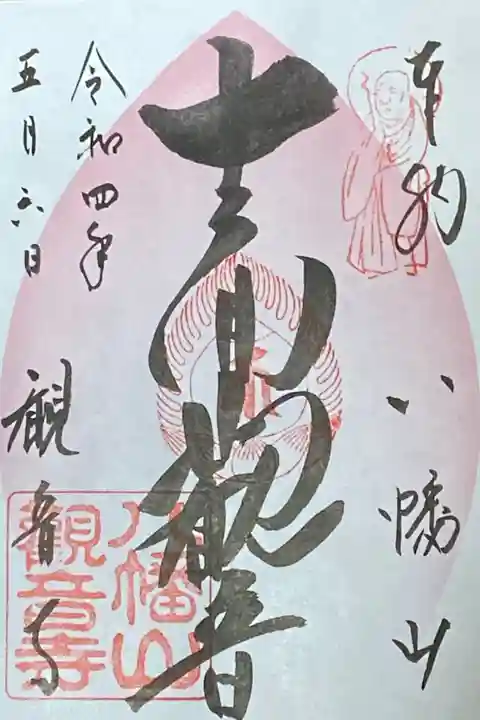 奉拝
八幡山
十一面観音
令和四年
五月六日
観音寺
八幡山
観音寺